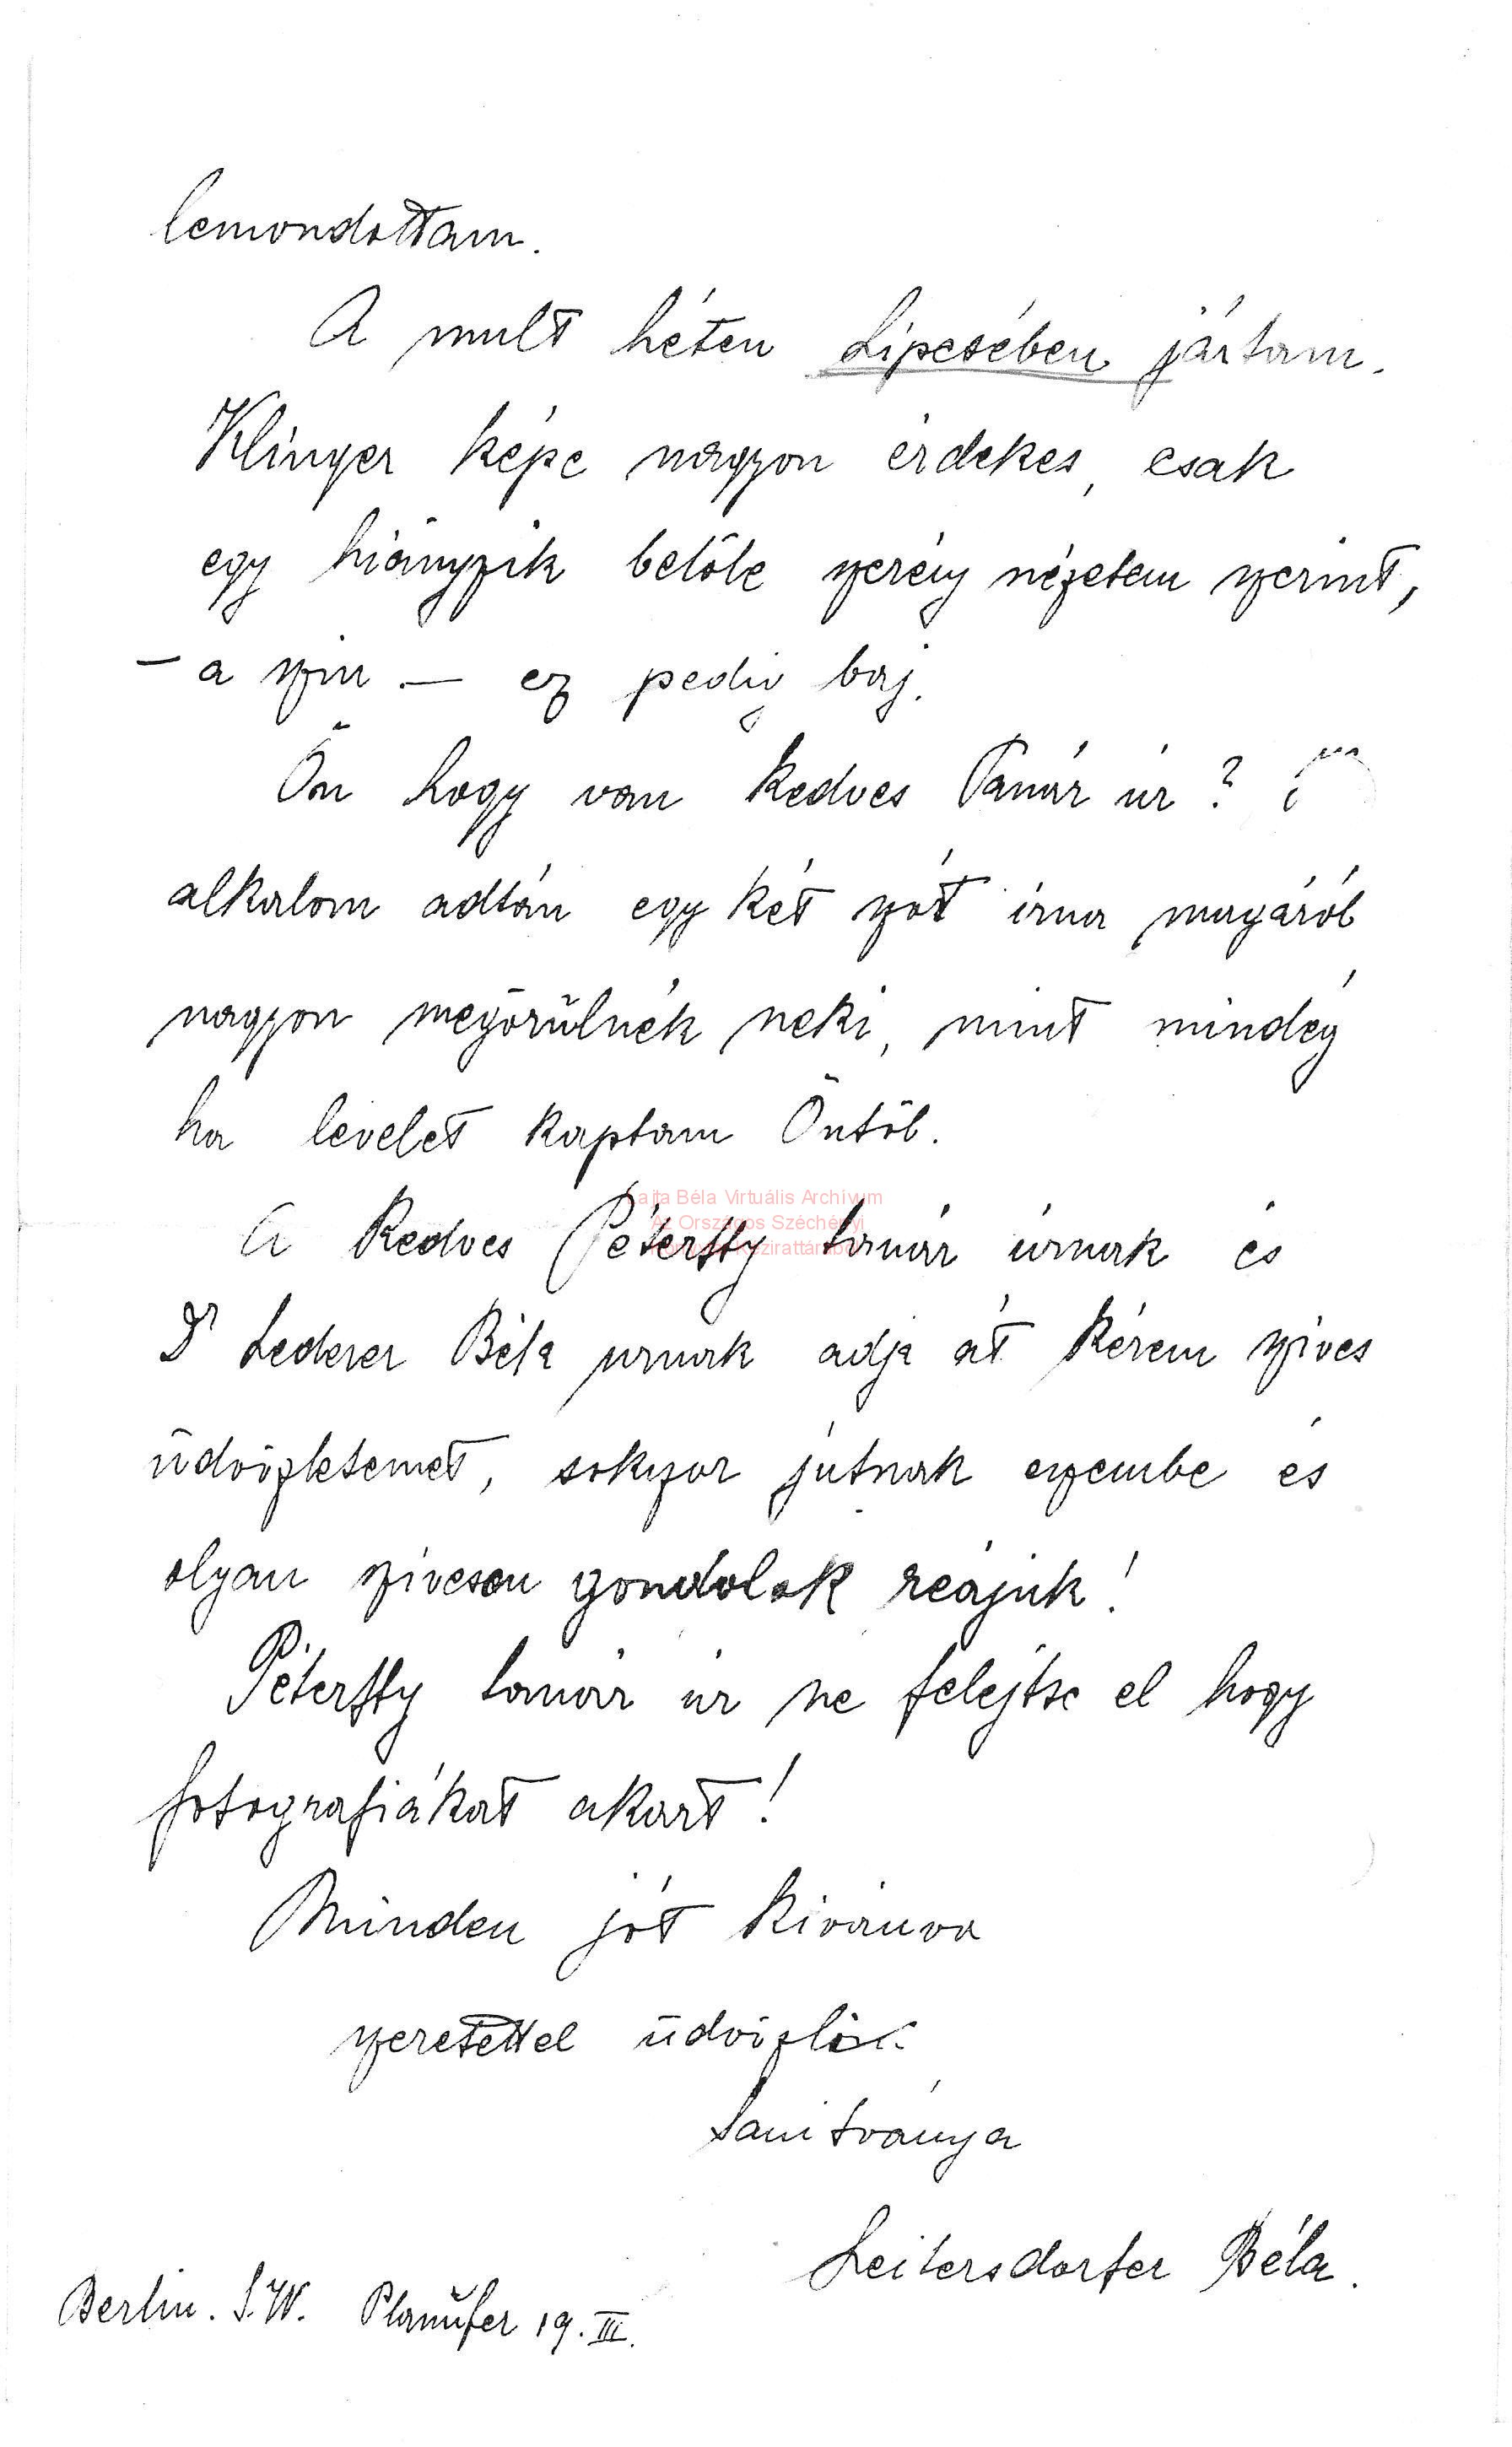 lemondottam.
A mult héten Lipcsében jártam.
Klinger képe nagyon érdekes, csak
egy hiányzik belőle szerény nézetem szerint,
– a szin – ez pedig baj.
Ön hogy van kedves Tanár úr?
alkalom adtán egy két szót irna magáról
nagyon megörülnék neki, mint mindég
ha levelet kaptam Öntöl.
A kedves Péterffy tanár úrnak és
Dr Lederer Béla urnak adja át kérem szives
üdvözletemet, sokszor jutnak eszembe és
olyan szivesen gondolok reájuk!
Péterffy tanár úr ne felejtse el hogy
fotografiákat akart!
Minden jót kivánva
szeretettel üdvözlik
tanitványa
Leitersdorfer Béla.
Berlin. S.W. Planufer 19. III.
Lajta Béla Virtuális Archívum
Az Országos Széchényi
Könyvtár Kézirattárából